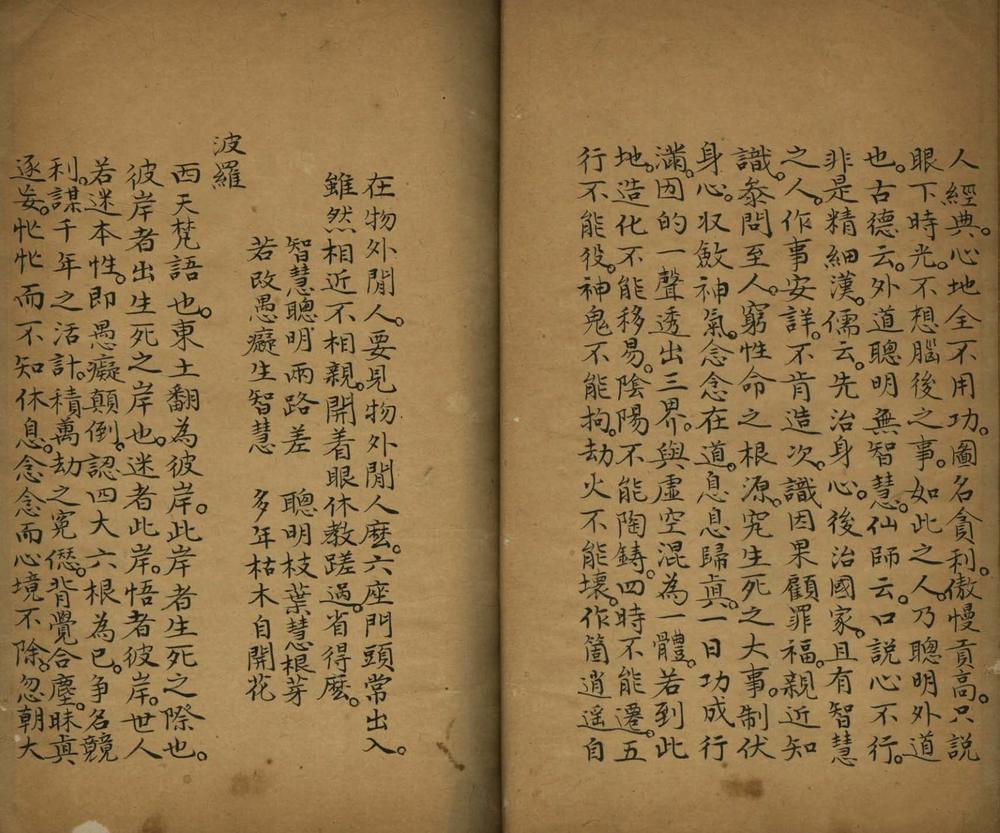 人經典。心地全不用功。圖名貪利。傲慢貢高。只說
眼下時光。不想腦後之事。如此之人乃聰明外道
也。古德云。外道聰明無智慧。仙師云。口說心不行。
非是精細漢。儒云。先治身心。後治國家。且有智慧
之人。作事安詳。不肯造次。識因果顧罪福。親近知
識。叅問至人。窮性命之根源。究生死之大事。制伏
身心。収斂神氣。念念在道。息息歸真。一日功成行
滿。因的一聲透出三界。與虛空混為一體。若到此
地。造化不能移易。陰陽不能陶鑄。四時不能遷。五
行不能役。神鬼不能拘。劫火不能壞。作箇逍遥自
在物外閒人。要見物外閒人麽。六座門頭常出入。
雖然相近不相親。開着眼休教蹉過。省得麽。
智慧聰明兩路差 聰明枝葉慧根芽
若改愚癡生智慧 多年枯木自開花
波羅
西天梵語也。東土翻為彼岸。此岸者生死之際也。
彼岸者出生死之岸也。迷者此岸。悟者彼岸。世人
若迷本性。即愚癡顛倒。認四大六根為己。争名競
利。謀千年之活計。積萬劫之寃僽。背覺合塵。昧真
逐妄。忙忙而不知休息。念念而心境不除。忽朝大